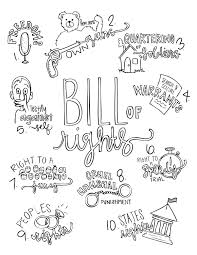 1
FREEDOMS
2
own guns
3
QUARTERING
of Soldiers
4
WARRANTS
BILL
OF
rights
testify
against
5 self
6
RIGHT TO
TRIAL
RIGHT TO A
7
jury
8
CRUEL
UNUSUAL
PUNISHMENT
9
PEOPLES
rights
10 STATES
rights